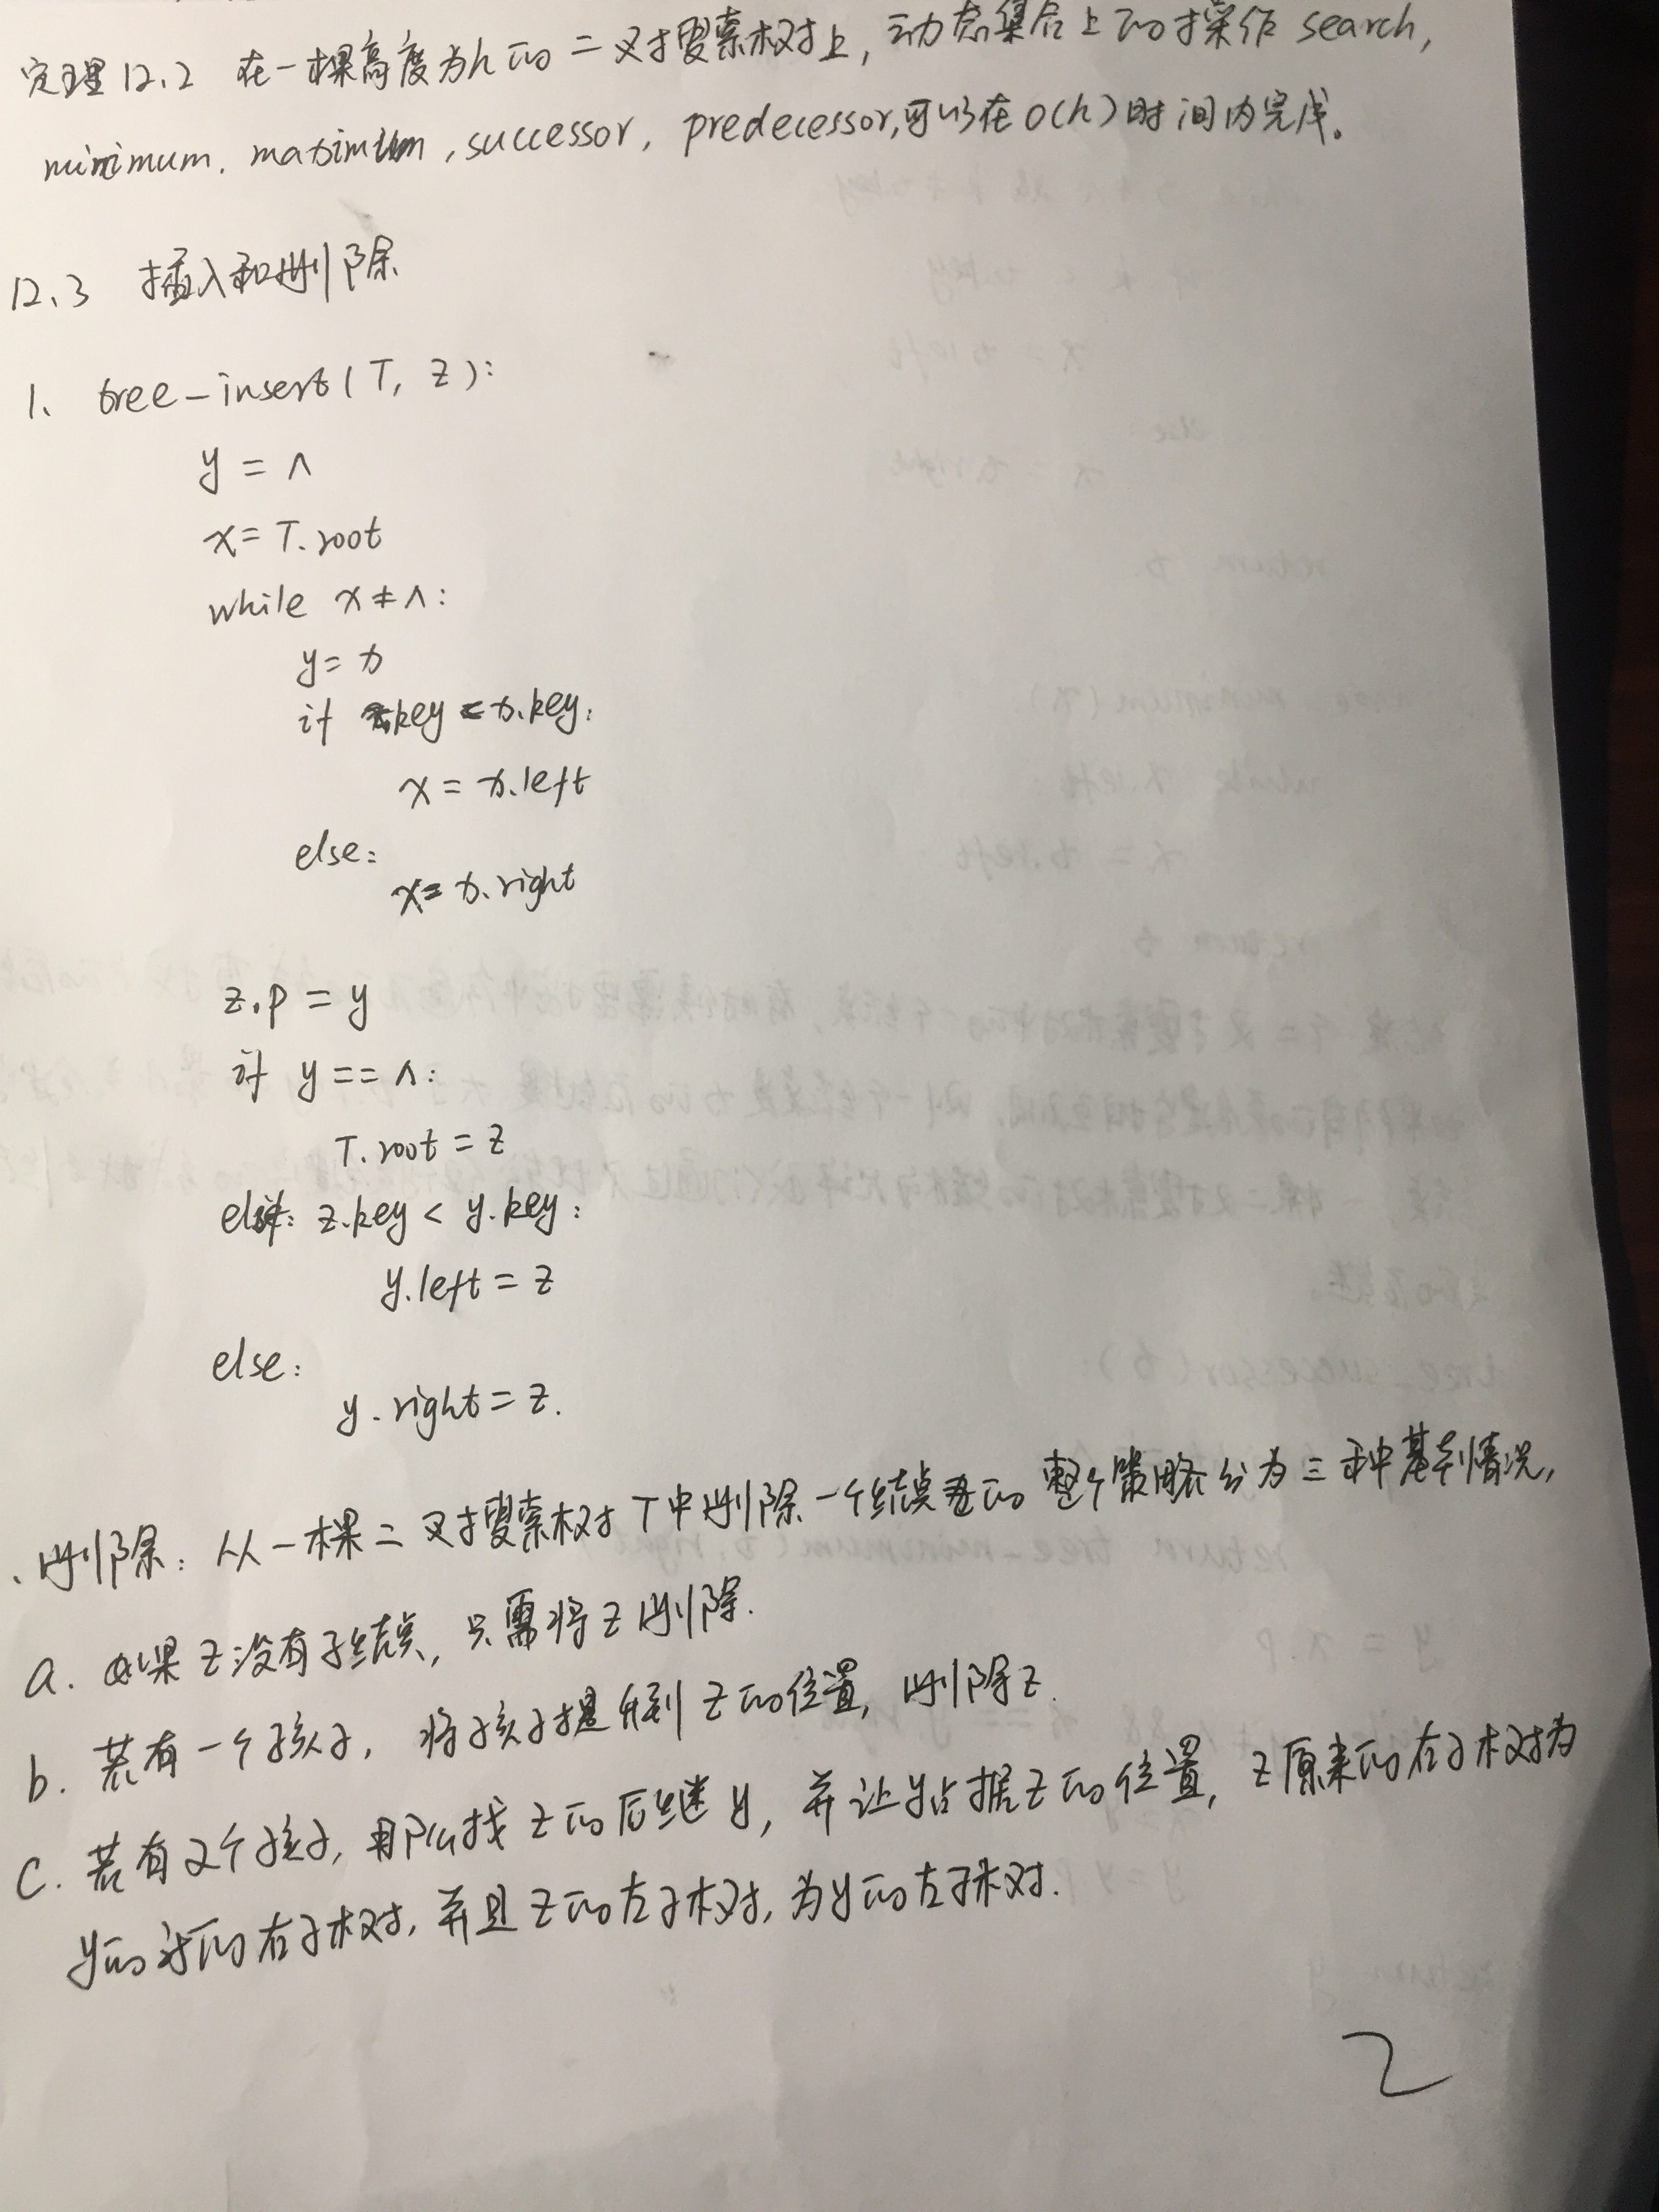 定理12.2 在一棵高度为h的二叉搜索树上,动态集合上的操作 search,
minimum, maximum, successor, predecessor,可以在O(h)时间内完成。
12.3 插入和删除
1. tree-insert(T, z):
y = ∧
x = T.root
while x ≠ ∧:
y = x
if z.key < x.key:
x = x.left
else:
x = x.right
z.p = y
if y == ∧:
T.root = z
elif: z.key < y.key:
y.left = z
else:
y.right = z.
、删除:从一棵二叉搜索树T中删除一个结点z的整个策略分为三种基本情况,
a. 如果z没有子结点,只需将z删除.
b. 若有一个孩子,将孩子提升到z的位置,删除z.
C. 若有2个孩子,那么找z的后继y,并让y占据z的位置,z原来的右子树为
y的新的右子树,并且z的左子树,为y的左子树.
2